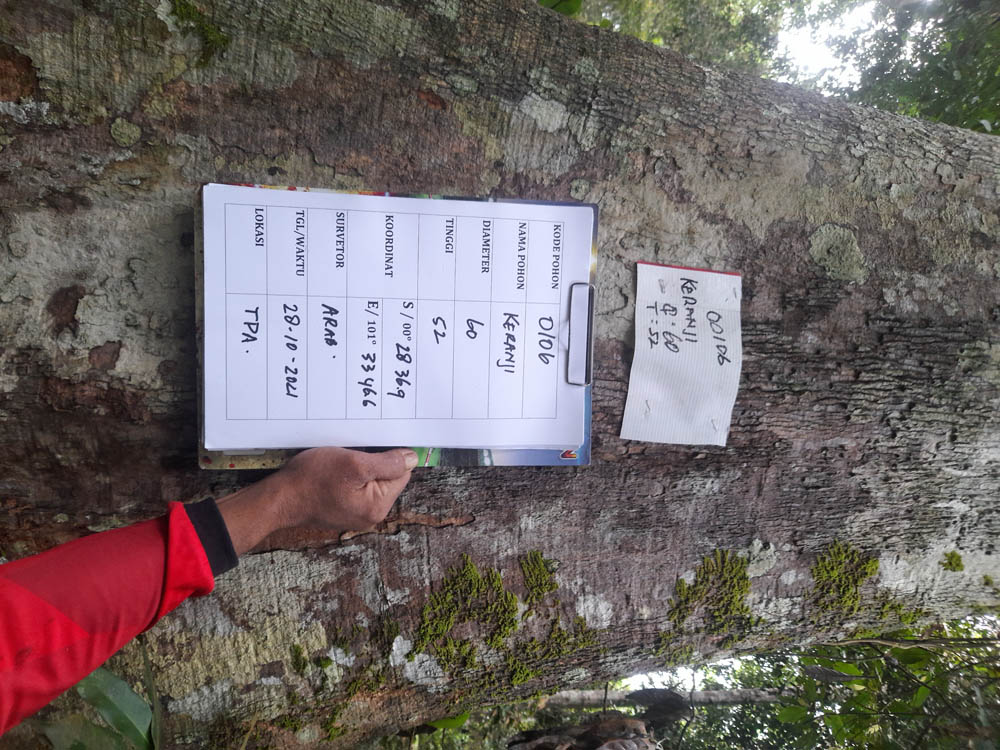 00106
KERANJI
Φ : 60
T : 52
KODE POHON 0106
NAMA POHON KERANJI
DIAMETER 60
TINGGI 52
KOORDINAT S / 00° 28 36.9
E/ 101° 33 46.6
SURVETOR ARAB.
TGL/WAKTU 28-10-2021
LOKASI TPA.